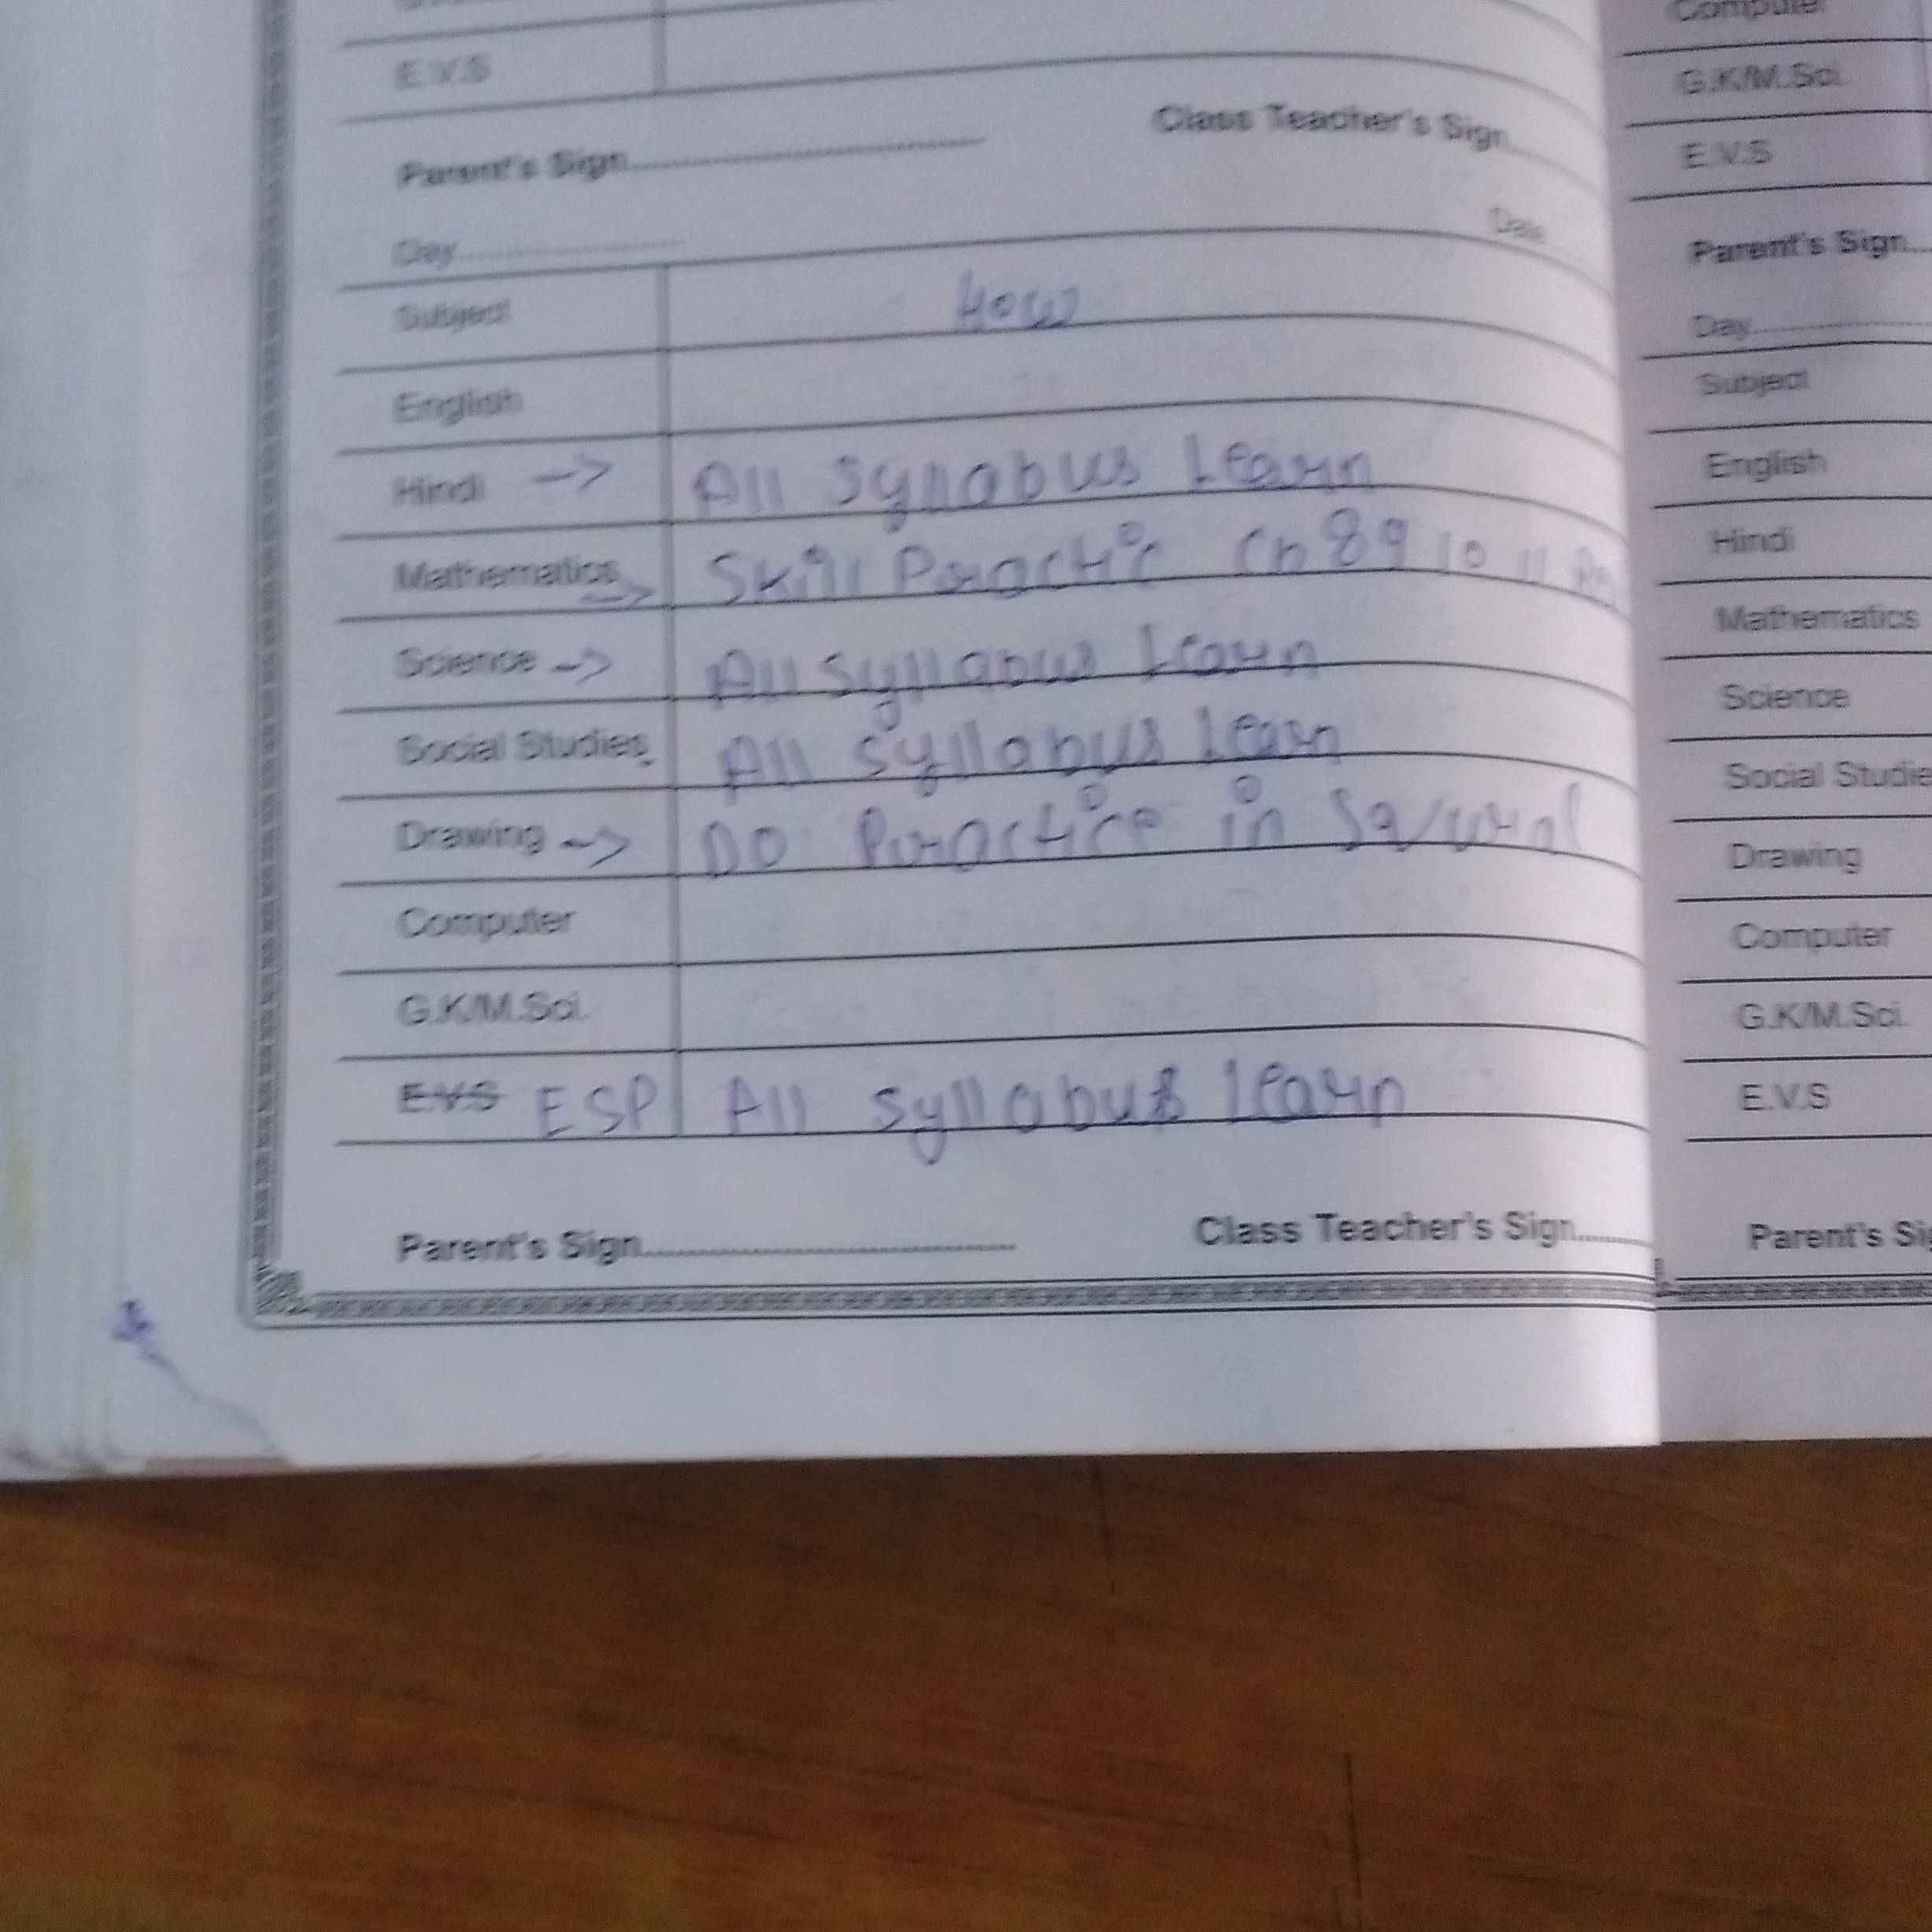 E.V.S
Parent's Sign.................... Class Teacher's Sign....
Day.................... Date
Subject How
English
Hindi -> All Syllabus Learn
Mathematics -> Skill Practic Ch 8 9 10 11
Science -> All Syllabus Learn
Social Studies All Syllabus Learn
Drawing -> DO Practice in
Computer
G.K/M.Sci.
E.V.S ESP All Syllabus Learn
Parent's Sign.................... Class Teacher's Sign........
Computer
G.K/M.Sci.
E.V.S
Parent's Sign...
Day....................
Subject
English
Hindi
Mathematics
Science
Social Studie
Drawing
Computer
G.K/M.Sci.
E.V.S
Parent's Sig